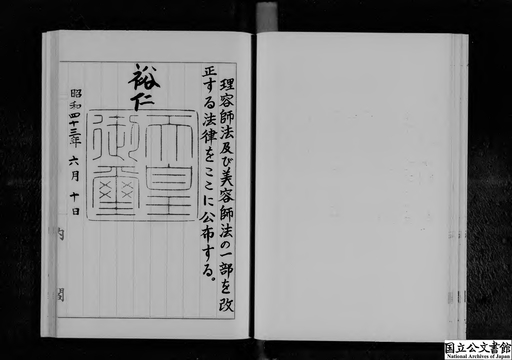 理容師法及び美容師法の一部を改
正する法律をここに公布する。
裕仁
天皇
御璽
昭和四十三年六月十日
内閣
国立公文書館
National Archives of Japan